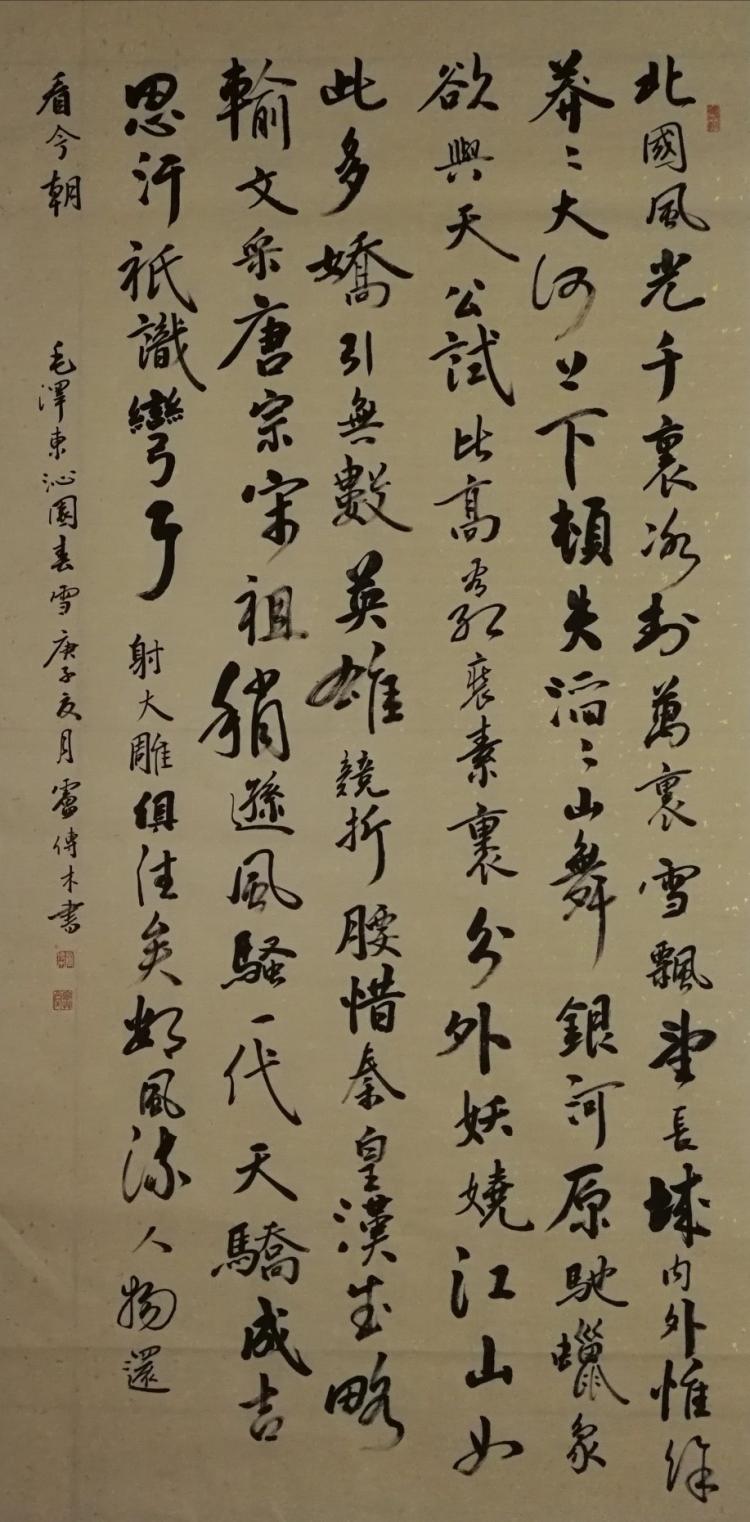 北國風光千裏冰封萬裏雪飄望長城內外惟餘
莽〻大河上下頓失滔〻山舞銀河原馳蠟象
欲與天公試比高看紅裝素裹分外妖嬈江山如
此多嬌引無數英雄競折腰惜秦皇漢武略
輸文采唐宗宋祖稍遜風騷一代天驕成吉
思汗祇識彎弓射大雕俱往矣數風流人物還
看今朝
毛澤東沁園春雪庚子夏月盧傳木書